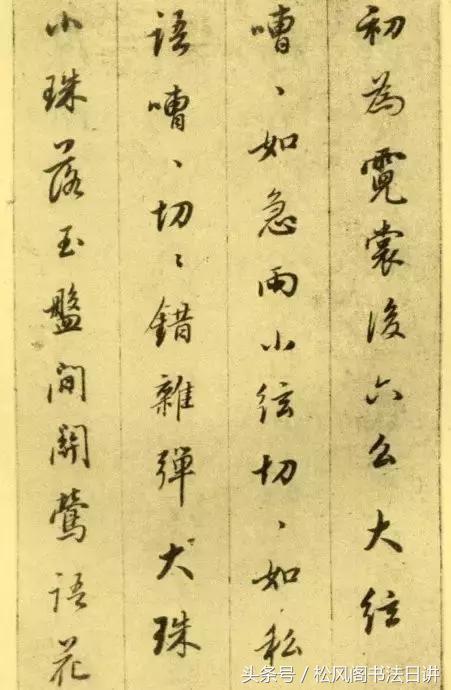 初為霓裳後六么大弦
嘈、如急雨小弦切、如私
语嘈、切〻錯雜弹大珠
小珠落玉盤间関鶯语花
头条号／松风阁书法日讲